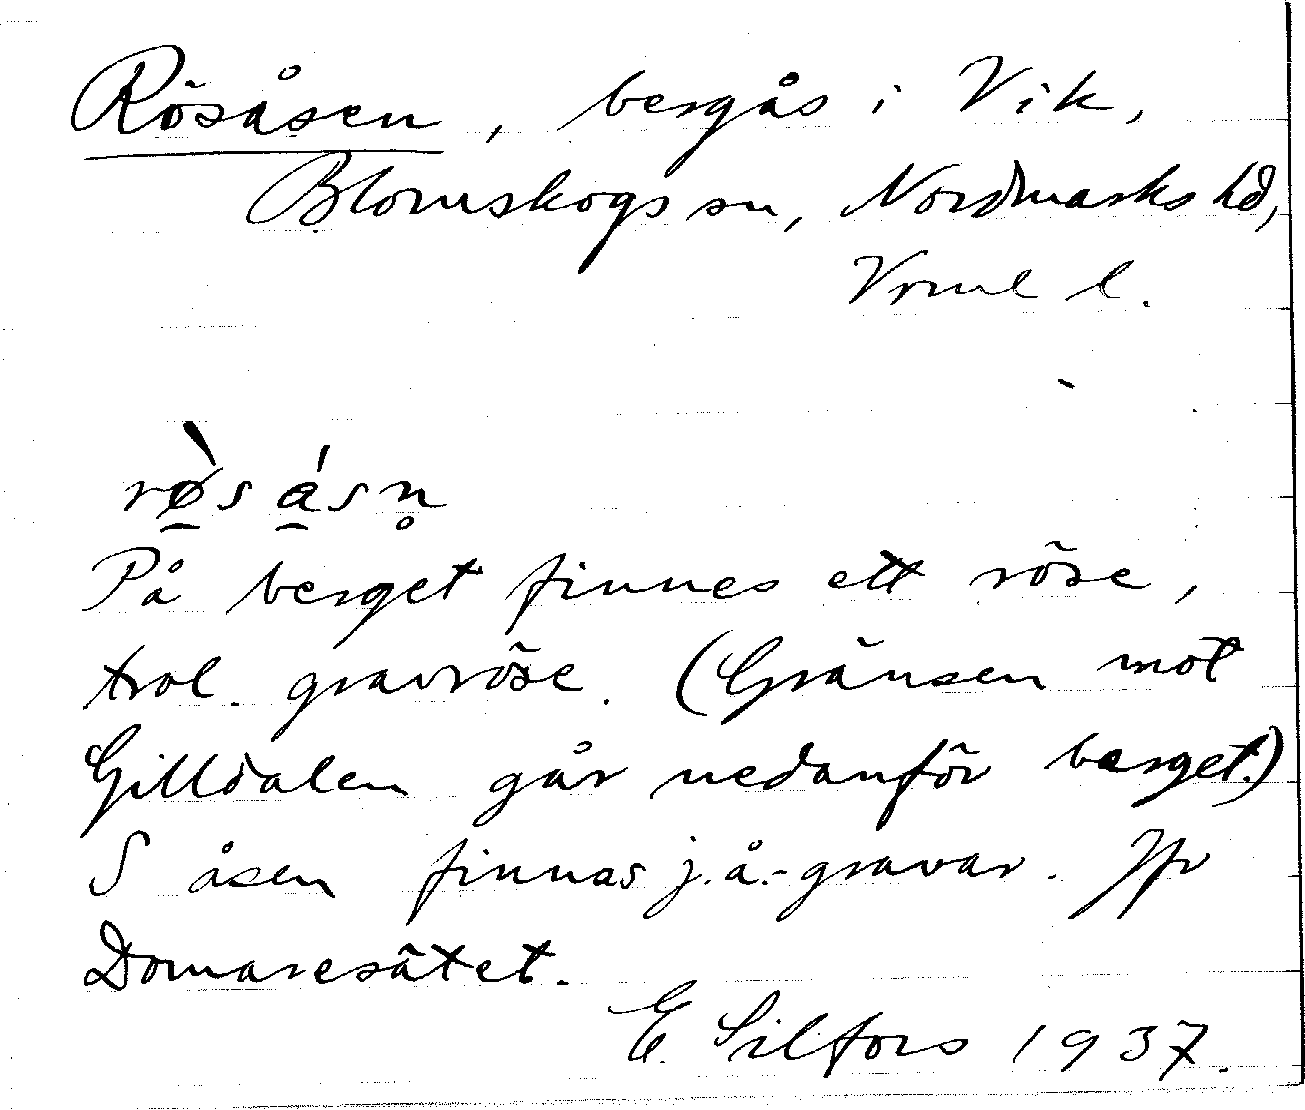 Rösåsen, bergås i Vik,
Blomskogs sn, Nordmarks hd,
Vrml l.
rø̱̀sǻ̱sn̥
På berget finnes ett röse,
trol. gravröse. (Gränsen mot
Gilldalen går nedanför berget.)
S åsen finnas j.å.-gravar. Jfr
Domaresätet.
E. Silfors 1937.